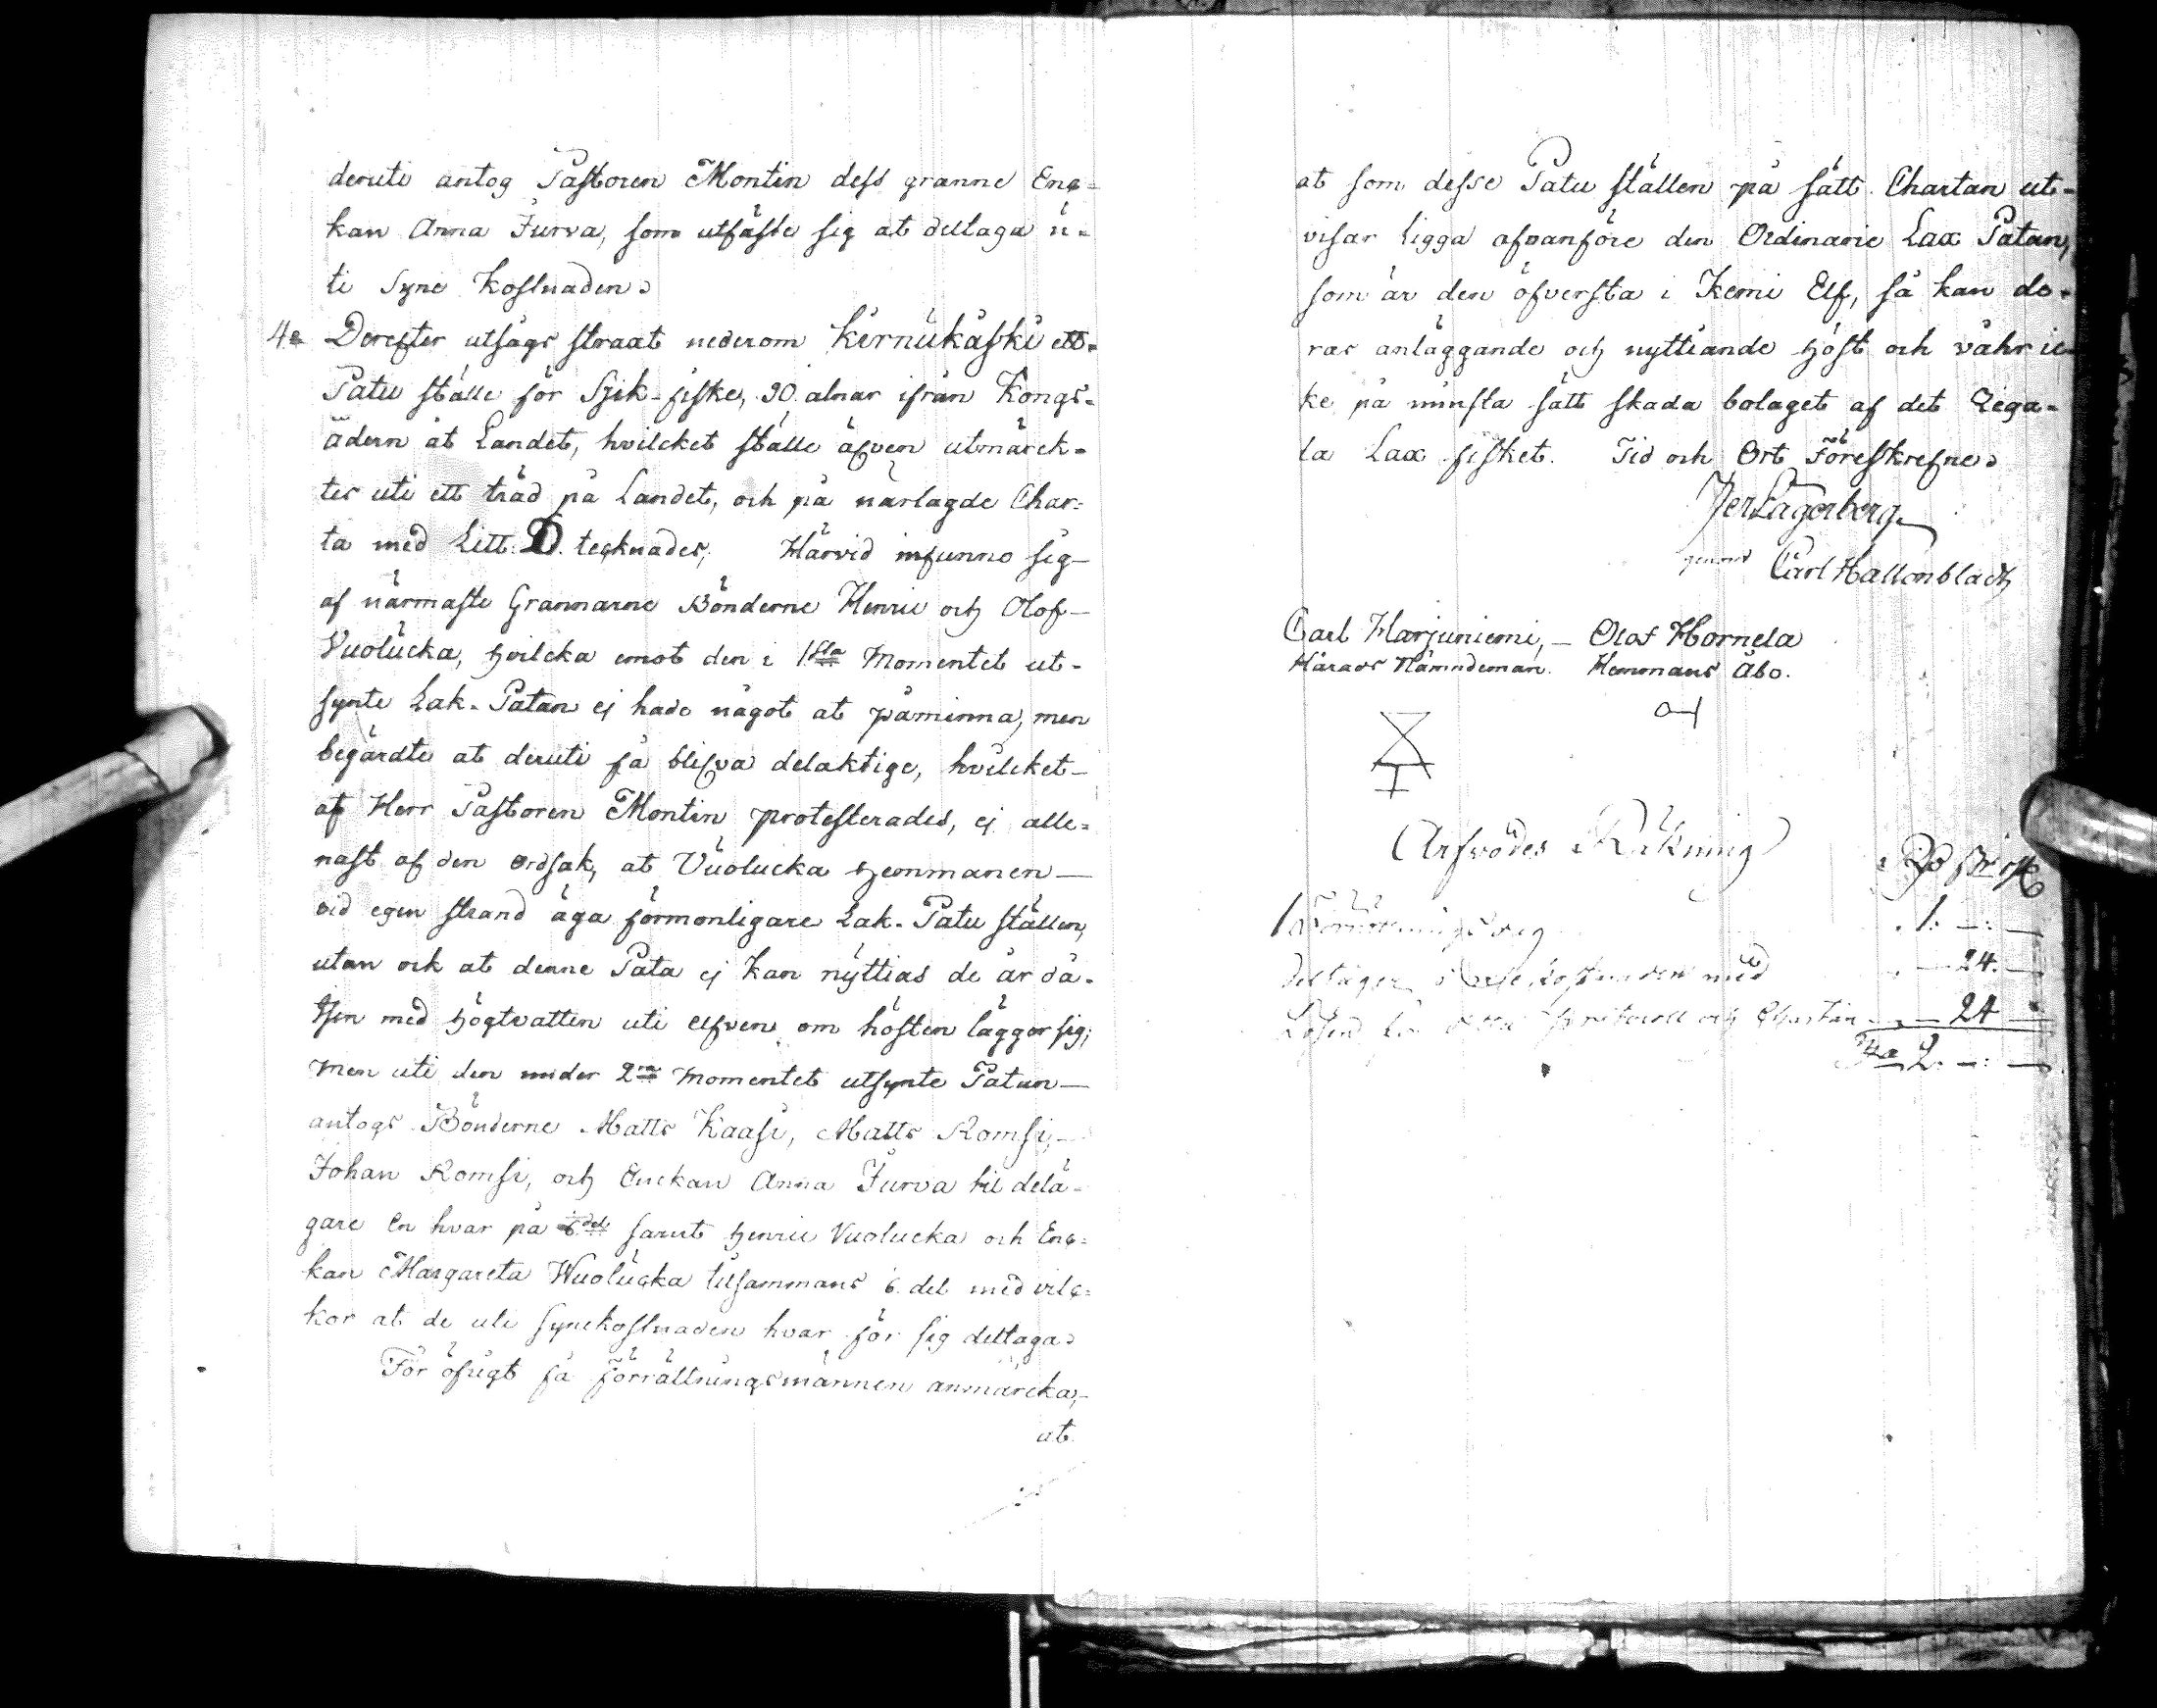 deruti antog Pastoren Montin dess granne Enc-
kan Anna Jurva, som utfäste sig at deltaga u-
ti Syne kostnaden.
4e Derefter utsågs straxt nederom Kirnukåski ett
Patu ställe för Sjik-fiske, 30 alnar ifrån Kongs-
ådern åt Landet, hvilcket ställe äfven utmärck-
tes uti ett träd på Landet, och på närlagde Char-
ta med Litt. D. tecknades; Härvid infunno sig
af närmaste Grannarne Bönderne Henric och Olof
Vuolucka, hvilcka emot den i 1sta Momentet ut-
synte Lak-Patan ej hade något at påminna, men
begärdte at deruti få blifva delaktige, hvilcket
af Herr Pastoren Montin protesterades, ej alle-
nast af den ordsak, at Vuolucka hemmanen
vid egen strand äga förmonligare Lak-Patu ställen,
utan ock at denne Pata ej kan nyttias de år då
Isen med högtvatten uti elfven om hösten lägger sig;
men uti den under 2ra Momentet utsynte Patan
antogs Bönderne Matts Kaasi, Matts Romsi,
Johan Romsi, och Enckan Anna Jurva til delä-
gare en hvar på 6 del samt Henric Vuolucka och Enc-
kan Margareta Wuolucka tilsammans 6 del med vilc-
kor at de uti synekostnaden hvar för sig deltaga.
För öfrigt få förrättningsmännen anmärcka,
at
at som desse Patu ställen på sätt Chartan ut-
visar ligga ofvanföre den Ordinarie Lax Patan,
som är den öfversta i Kemi Elf, så kan de-
ras anläggande och nyttiande höst och våhr ic-
ke på minsta sätt skada bolaget af det Rega-
la Lax fisket. Tid och Ort Föreskrefne.
Per Lagerberg
genom Carl Hallonblad
Carl Harjuniemi, Olof Hornela
Härads Nämndeman. Hemmans Åbo.
Arfvodes Räkning
1 Förrättnings dag 1.
deltager i med 24.
Lösen för detta Protocoll och Chartan 24
2.